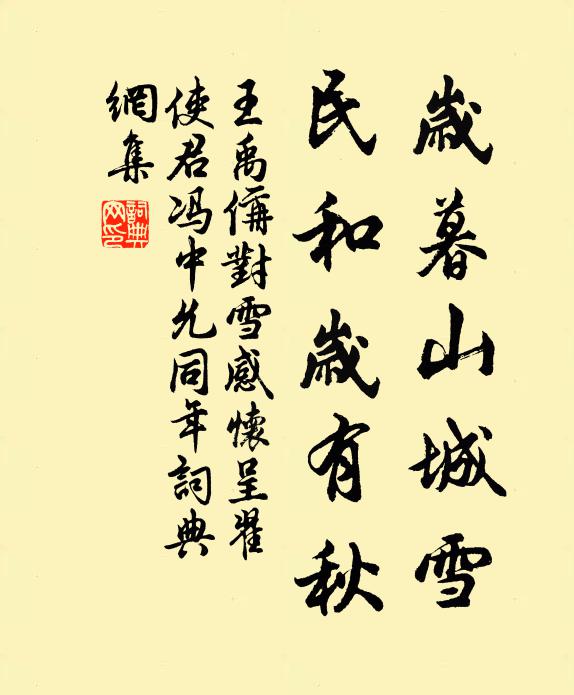 歲暮山城雪
民和歲有秋
王禹偁對雪感懷呈翟
使君馮中允同年詞典
網集
詞典
网印